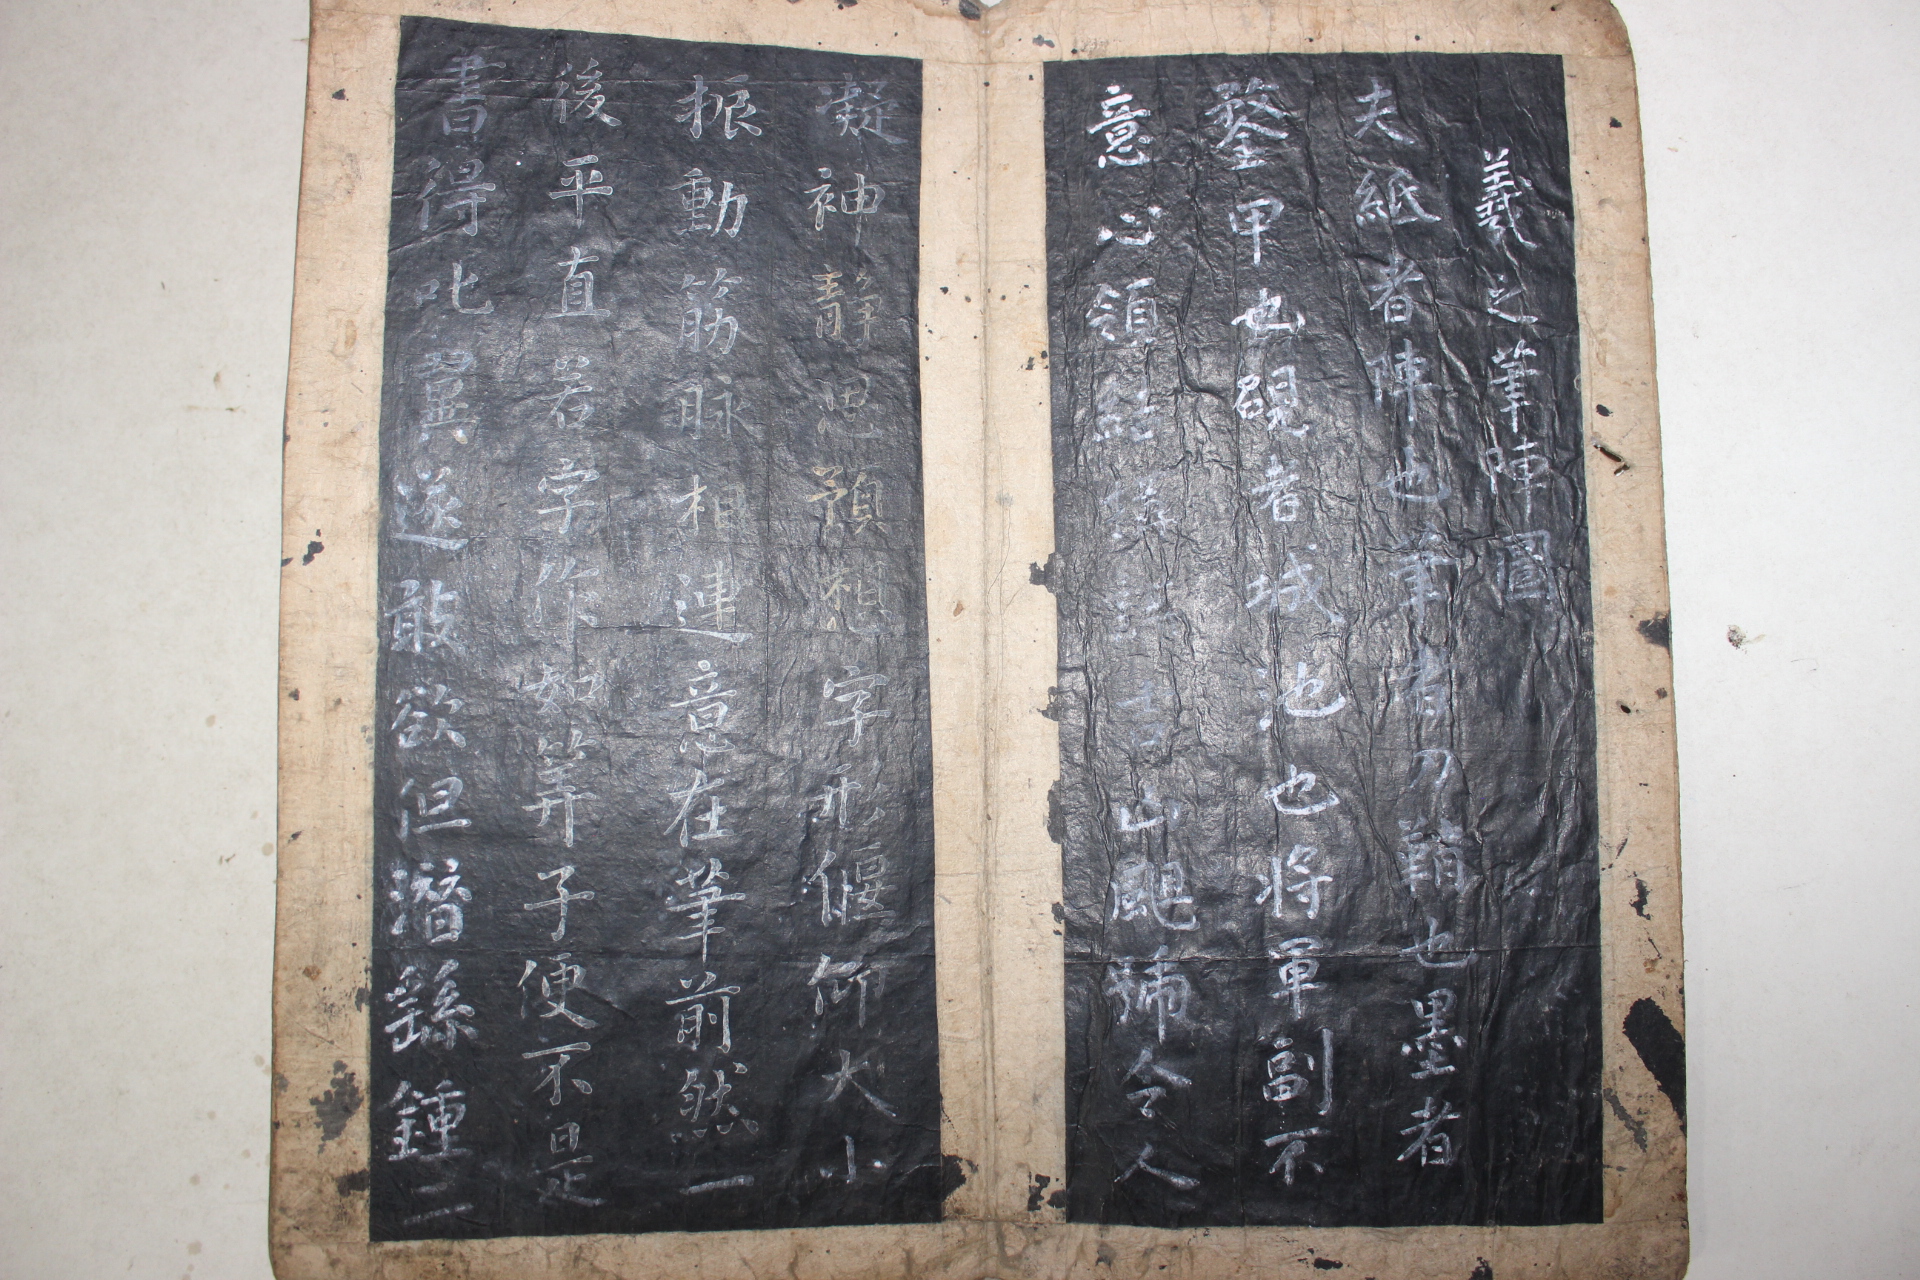 羲之筆陣圖
夫紙者陣也筆者刀鞘也墨者
鍪甲也硯者城池也將軍副不
意心領結構吉山颶令人
凝神靜思預想字形偃仰大小
振動筋脉相連意在筆前然一
後平直若字作如筭子便不是
書得叱翼遂敢欲但潛繇鍾二